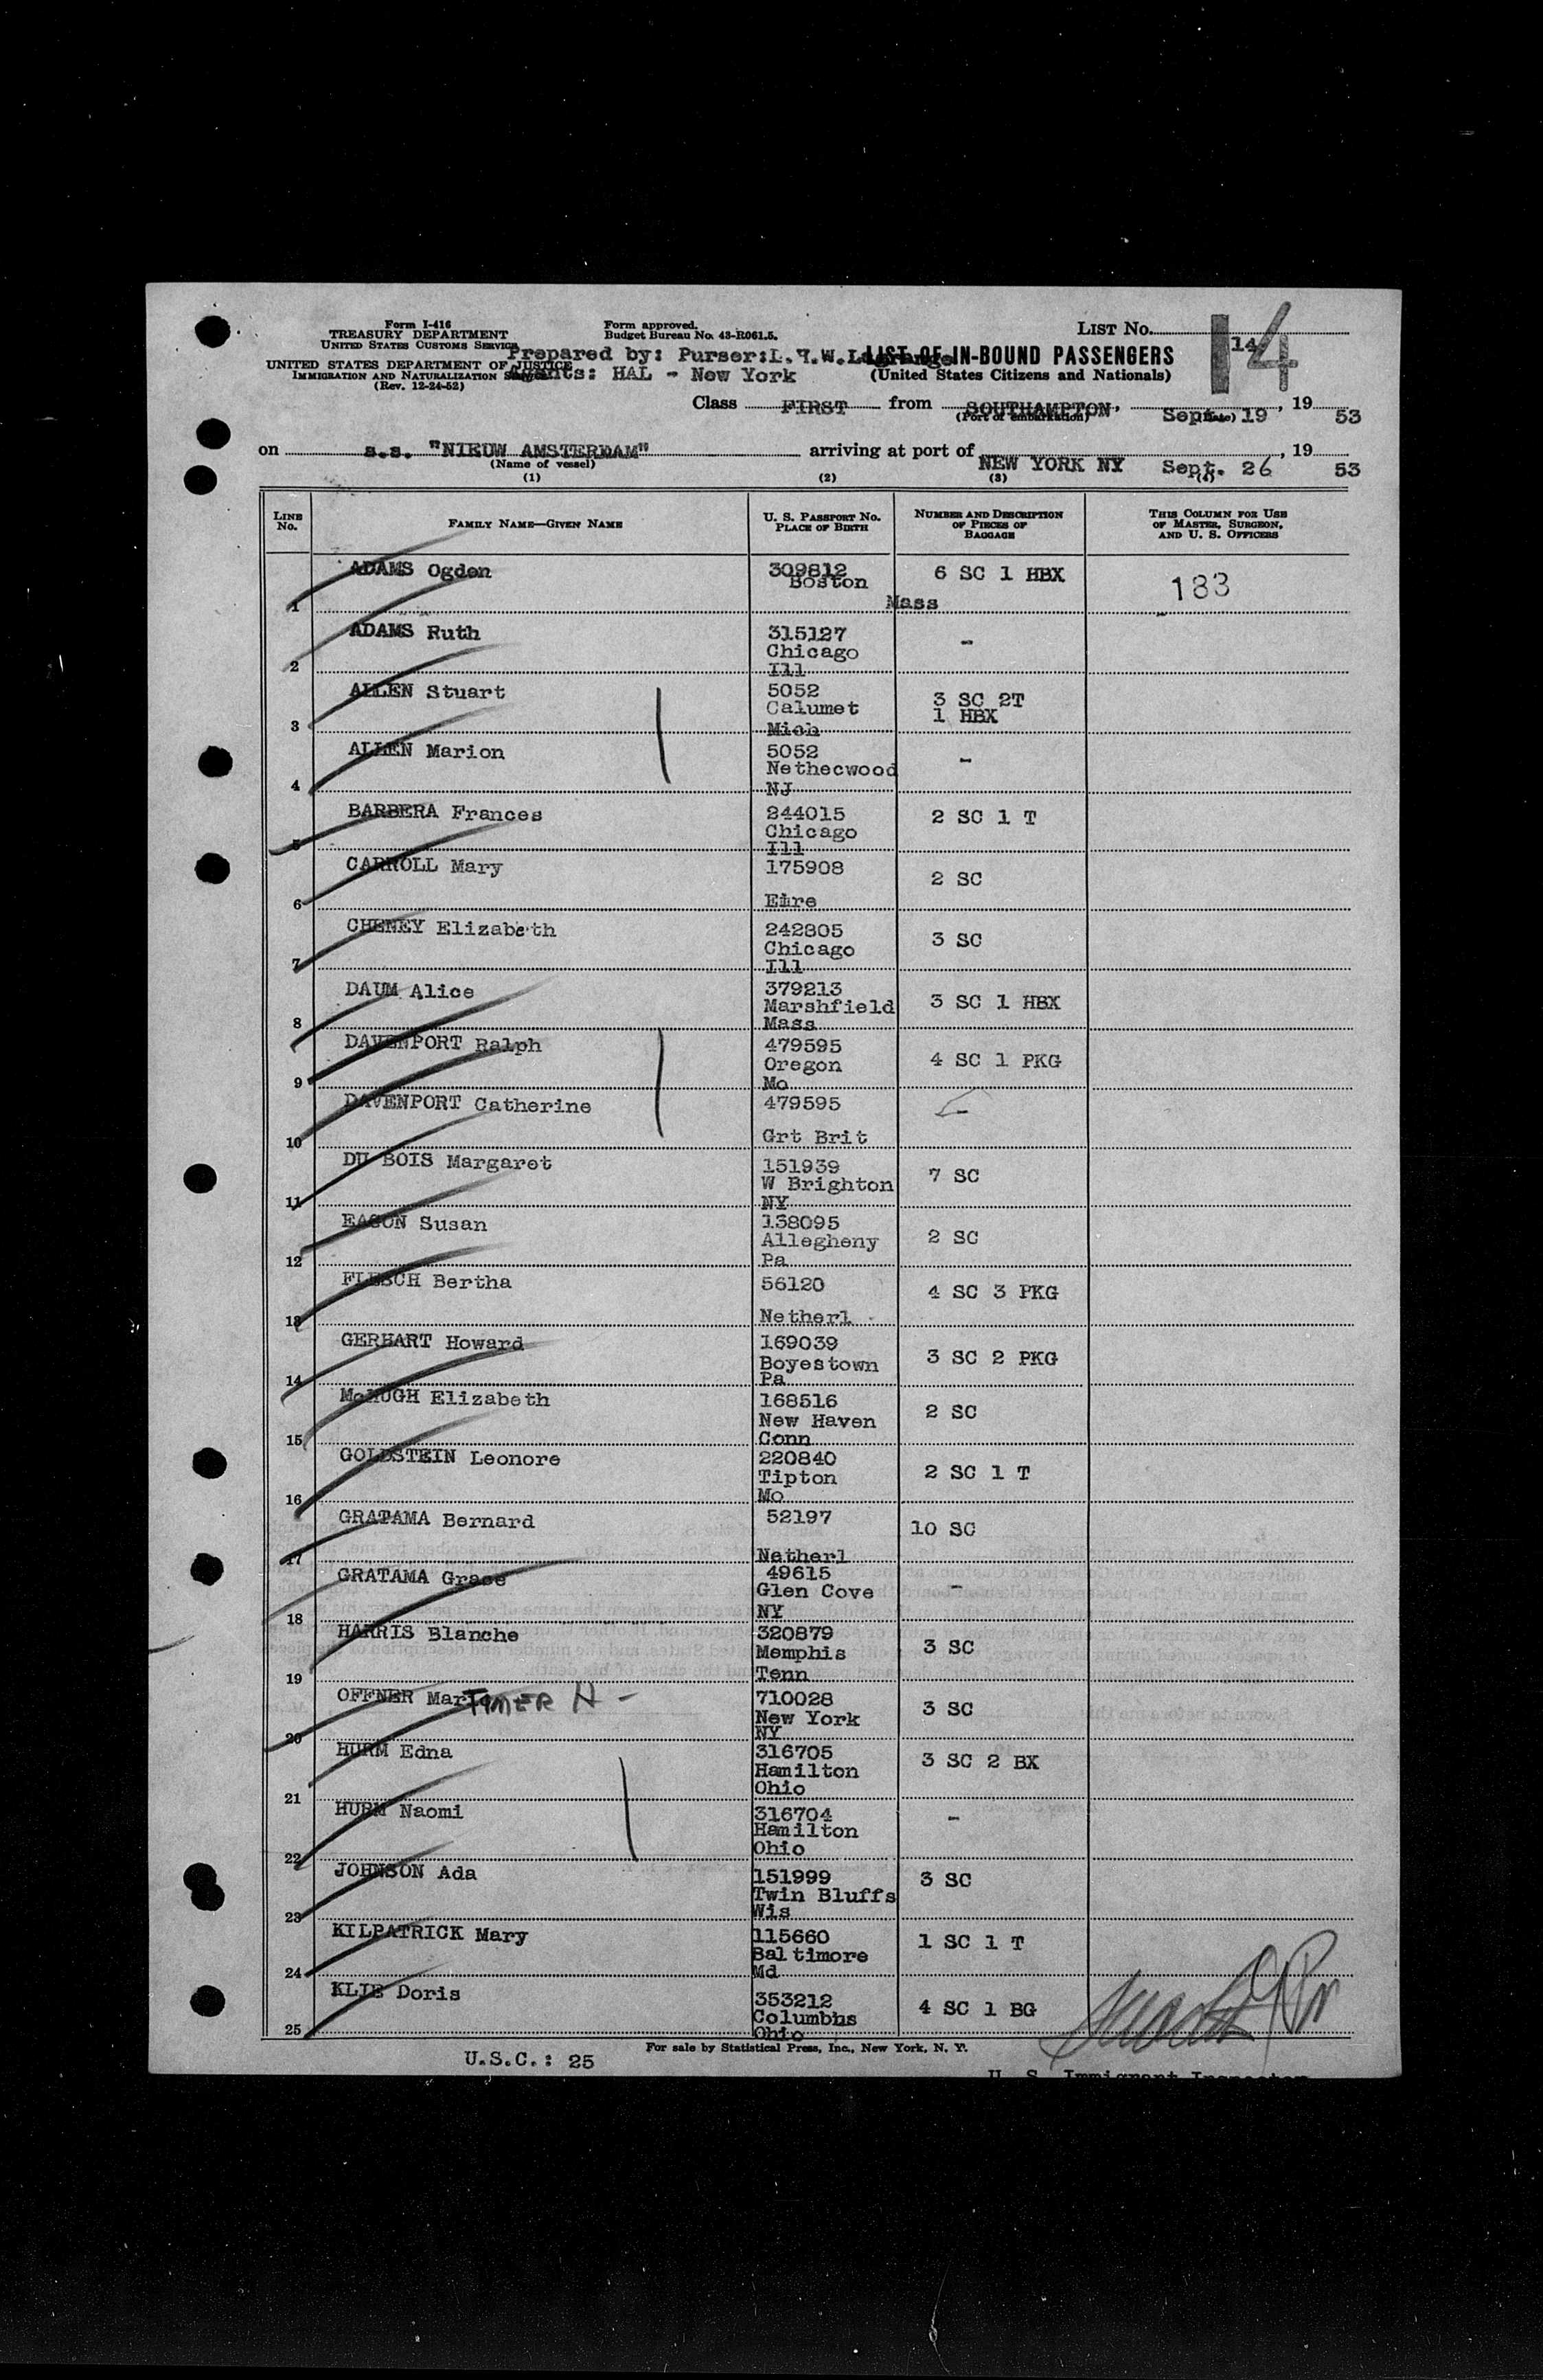 Form I-416
TREASURY DEPARTMENT
UNITED STATES CUSTOMS SERVICE
UNITED STATES DEPARTMENT OF JUSTICE
IMMIGRATION AND NATURALIZATION
(Rev. 12-24-52)
Form approved.
Budget Bureau No. 43-R061.5.
Prepared by: Purser: L. .W.Lagrange
Agents: HAL - New York
LIST No. 14
14
LIST OF IN-BOUND PASSENGERS
(United States Citizens and Nationals)
Class FIRST from SOUTHAMPTON, Sept. 19, 19 53
(Port of embarkation) (Date)
on s.s. "NIEUW AMSTERDAM" arriving at port of NEW YORK NY Sept. 26, 19 53
(Name of vessel)
(1) (2) (3) (4)
LINE No. FAMILY NAME—GIVEN NAME U. S. PASSPORT NO. PLACE OF BIRTH NUMBER AND DESCRIPTION OF PIECES OF BAGGAGE THIS COLUMN FOR USE OF MASTER, SURGEON, AND U. S. OFFICERS
1 ADAMS Ogden 309812 Boston Mass 6 SC 1 HBX 183
2 ADAMS Ruth 315127 Chicago Ill -
3 ALLEN Stuart 5052 Calumet Mich 3 SC 2T 1 HBX
4 ALLEN Marion 5052 Nethecwood NJ -
5 BARBERA Frances 244015 Chicago Ill 2 SC 1 T
6 CARROLL Mary 175908 Eire 2 SC
7 CHENEY Elizabeth 242805 Chicago Ill 3 SC
8 DAUM Alice 379213 Marshfield Mass 3 SC 1 HBX
9 DAVENPORT Ralph 479595 Oregon Mo 4 SC 1 PKG
10 DAVENPORT Catherine 479595 Grt Brit -
11 DU BOIS Margaret 151939 W Brighton NY 7 SC
12 EASON Susan 138095 Allegheny Pa 2 SC
13 FLESCH Bertha 56120 Netherl 4 SC 3 PKG
14 GERHART Howard 169039 Boyestown Pa 3 SC 2 PKG
15 McHUGH Elizabeth 168516 New Haven Conn 2 SC
16 GOLDSTEIN Leonore 220840 Tipton Mo 2 SC 1 T
17 GRATAMA Bernard 52197 Netherl 10 SC
18 GRATAMA Grace 49615 Glen Cove NY -
19 HARRIS Blanche 320879 Memphis Tenn 3 SC
20 OFFNER Mar H - 710028 New York NY 3 SC
21 HURM Edna 316705 Hamilton Ohio 3 SC 2 BX
22 HURM Naomi 316704 Hamilton Ohio -
23 JOHNSON Ada 151999 Twin Bluffs Wis 3 SC
24 KILPATRICK Mary 115660 Baltimore Md 1 SC 1 T
25 KLIE Doris 353212 Columbus Ohio 4 SC 1 BG
For sale by Statistical Press, Inc., New York, N. Y.
U.S.C.: 25
U. S. Immigrant Inspector